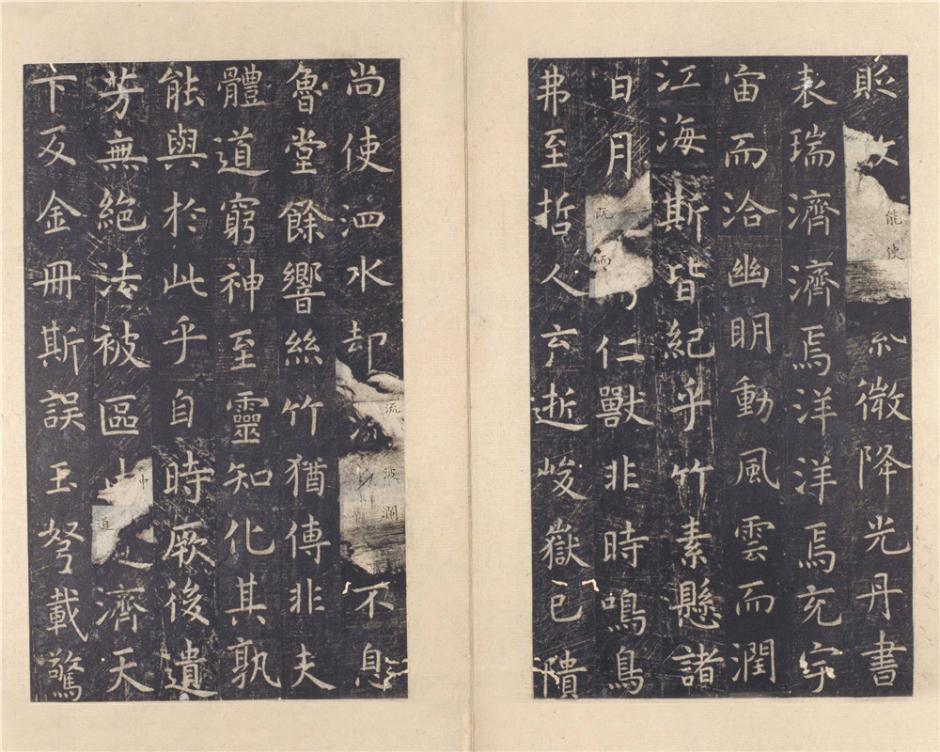 貶故能使紫微降光丹書
表瑞濟濟焉洋洋焉充宇
宙而洽幽明動風雲而潤
江海斯皆紀乎竹素懸諸
日月既而仁獸非時鳴鳥
弗至哲人云逝峻嶽已隤
尚使泗水却流波瀾不息
魯堂餘響絲竹猶傳非夫
體道窮神至靈知化其孰
能與於此乎自時厥後遺
芳無絕法被區中道濟天
下及金冊斯誤玉弩載驚